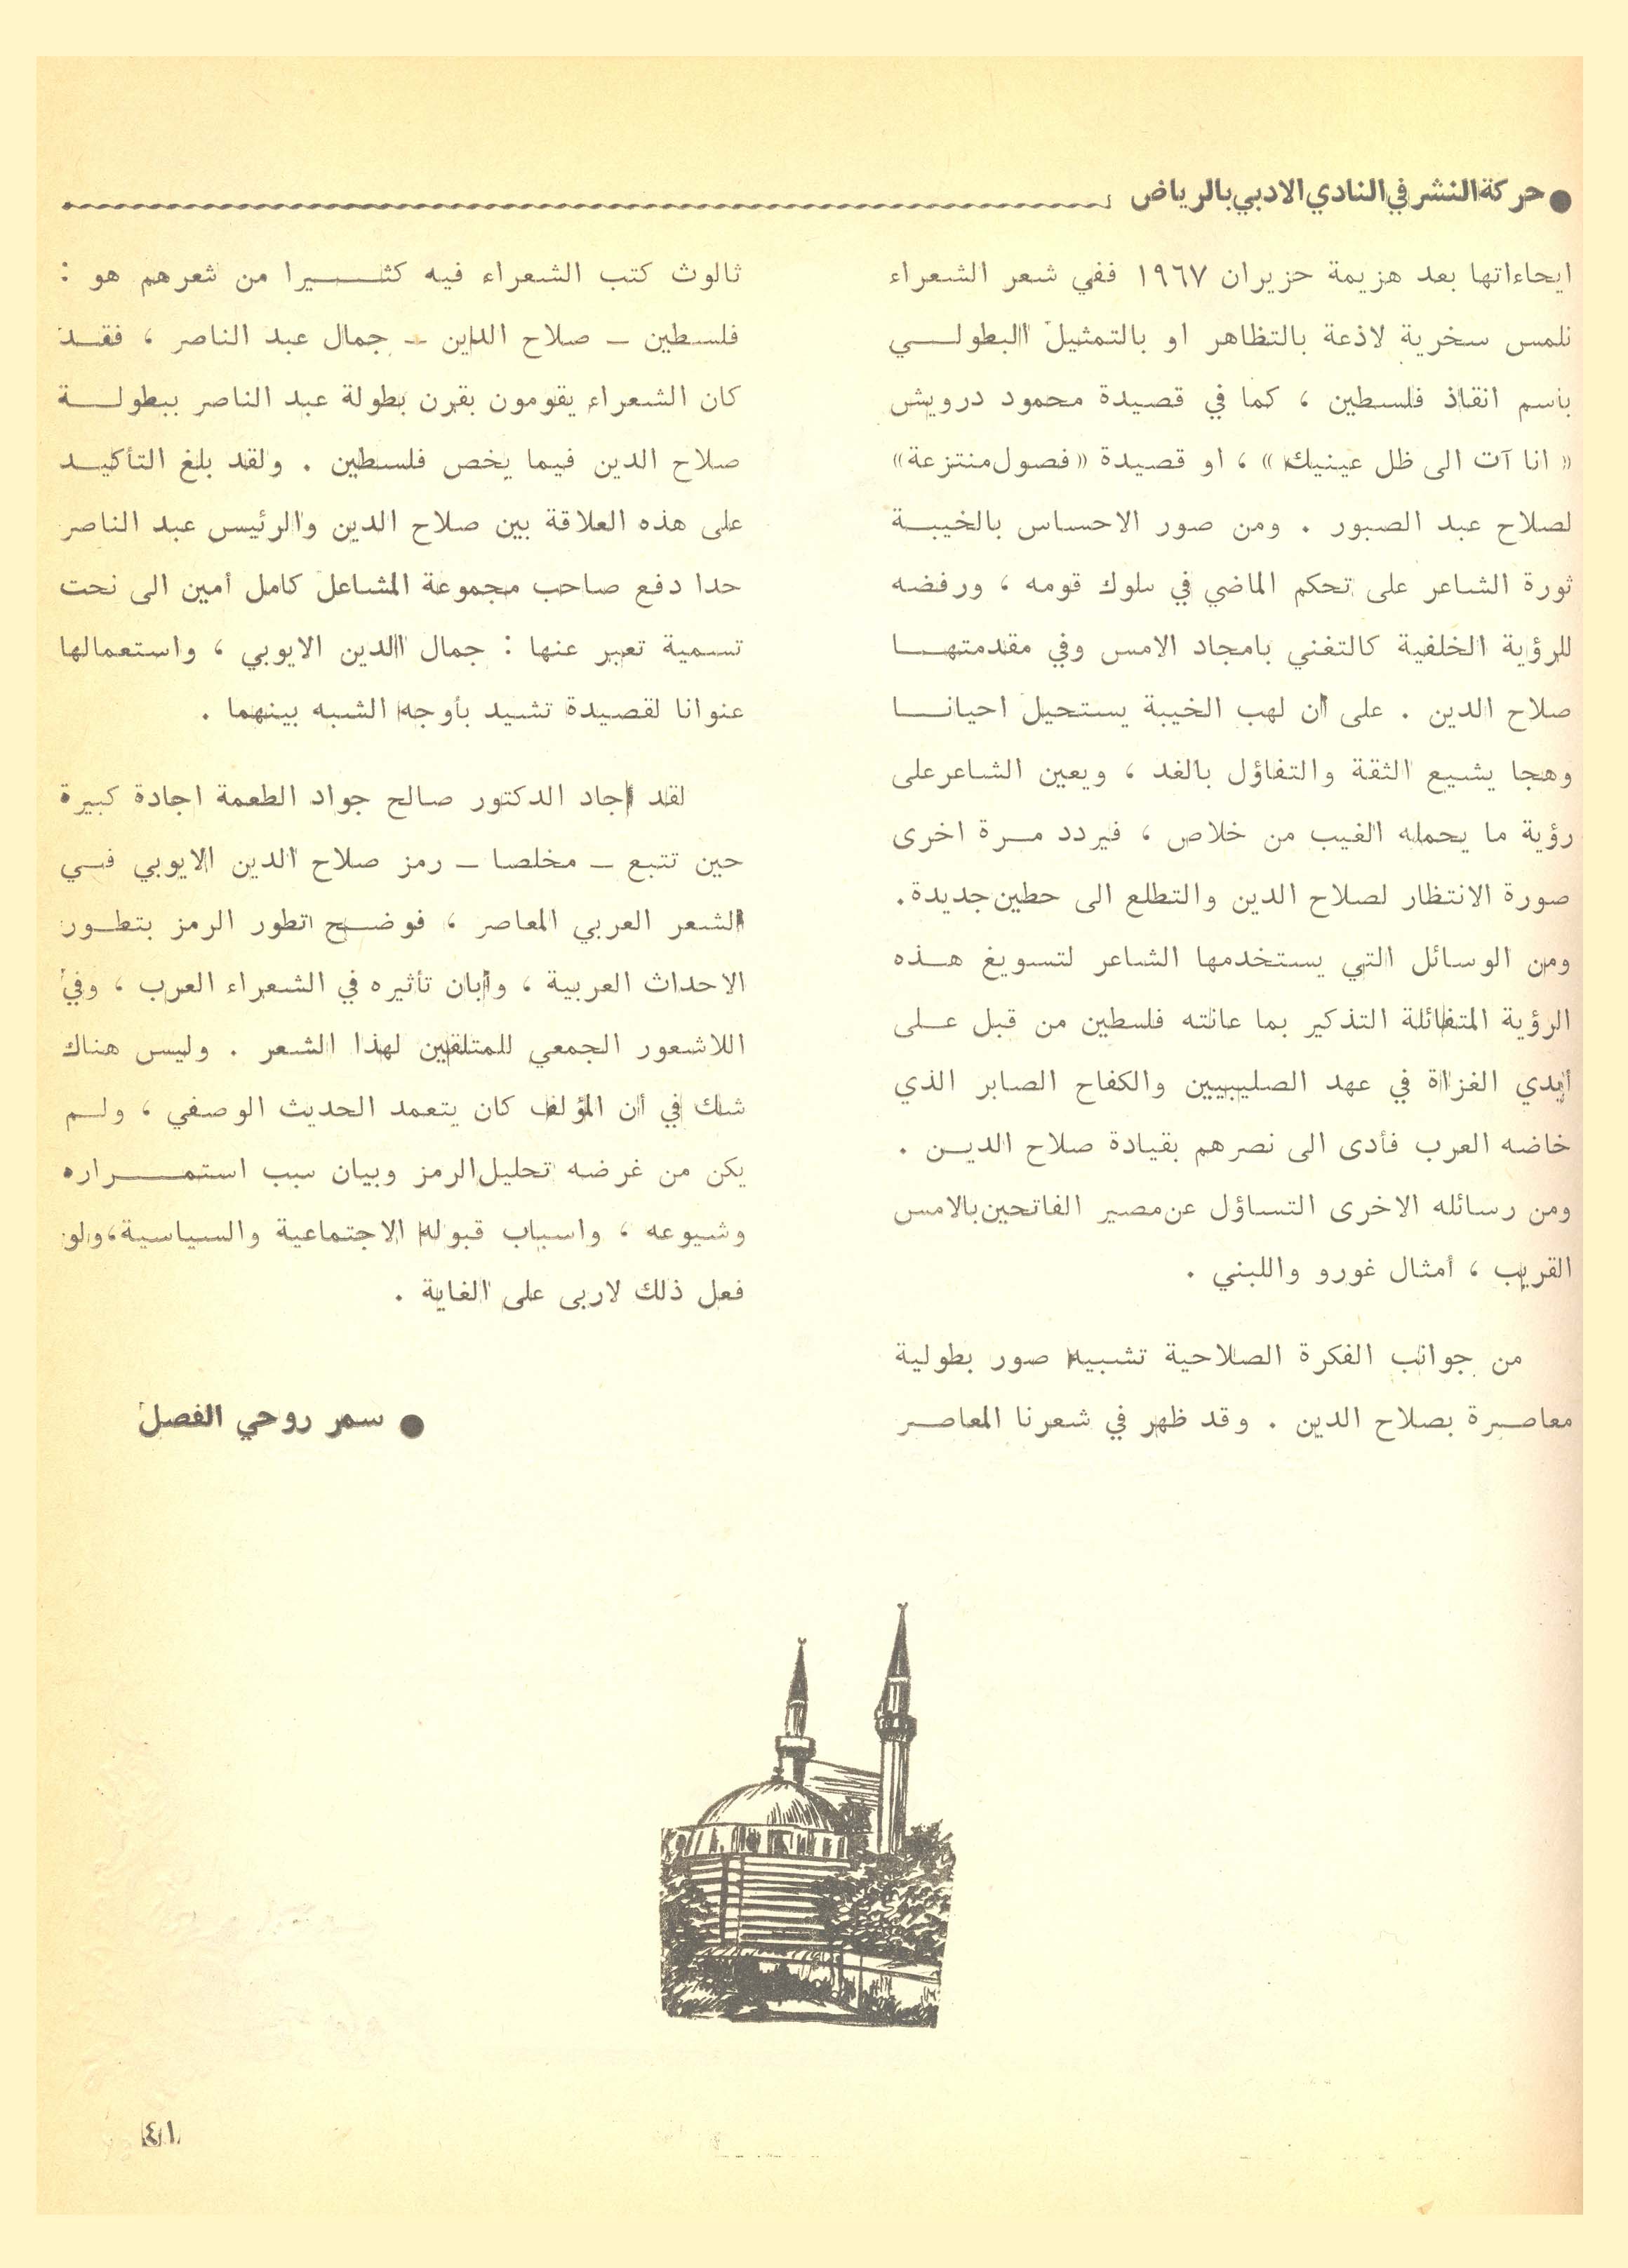 ● حركة النشر في النادي الادبي بالرياض
ايحاءاتها بعد هزيمة حزيران ١٩٦٧ ففي شعر الشعراء
نلمس سخرية لاذعة بالتظاهر او بالتمثيل البطولي
باسم انقاذ فلسطين ، كما في قصيدة محمود درويش
« انا آت الى ظل عينيك » ، او قصيدة « فصول منتزعة »
لصلاح عبد الصبور . ومن صور الاحساس بالخيبة
ثورة الشاعر على تحكم الماضي في سلوك قومه ، ورفضه
للرؤية الخلفية كالتغني بامجاد الامس وفي مقدمتها
صلاح الدين . على أن لهب الخيبة يستحيل احيانا
وهجا يشيع الثقة والتفاؤل بالغد ، ويعين الشاعر على
رؤية ما يحمله الغيب من خلاص ، فيردد مرة اخرى
صورة الانتظار لصلاح الدين والتطلع الى حطين جديدة.
ومن الوسائل التي يستخدمها الشاعر لتسويغ هذه
الرؤية المتفائلة التذكير بما عانته فلسطين من قبل على
أيدي الغزاة في عهد الصليبيين والكفاح الصابر الذي
خاضه العرب فأدى الى نصرهم بقيادة صلاح الدين .
ومن رسائله الاخرى التساؤل عن مصير الفاتحين بالامس
القريب ، أمثال غورو واللبني .
من جوانب الفكرة الصلاحية تشبيه صور بطولية
معاصرة بصلاح الدين . وقد ظهر في شعرنا المعاصر
ثالوث كتب الشعراء فيه كثيرا من شعرهم هو :
فلسطين – صلاح الدين – جمال عبد الناصر ، فقد
كان الشعراء يقومون بقرن بطولة عبد الناصر ببطولة
صلاح الدين فيما يخص فلسطين . ولقد بلغ التأكيد
على هذه العلاقة بين صلاح الدين والرئيس عبد الناصر
حدا دفع صاحب مجموعة المشاعل كامل أمين الى نحت
تسمية تعبر عنها : جمال الدين الايوبي ، واستعمالها
عنوانا لقصيدة تشيد بأوجه الشبه بينهما .
لقد اجاد الدكتور صالح جواد الطعمة اجادة كبيرة
حين تتبع – مخلصا – رمز صلاح الدين الايوبي في
الشعر العربي المعاصر ، فوضح تطور الرمز بتطور
الاحداث العربية ، وأبان تأثيره في الشعراء العرب ، وفي
اللاشعور الجمعي للمتلقين لهذا الشعر . وليس هناك
شك في أن المؤلف كان يتعمد الحديث الوصفي ، ولم
يكن من غرضه تحليل الرمز وبيان سبب استمراره
وشيوعه ، واسباب قبوله الاجتماعية والسياسية، ولو
فعل ذلك لاربى على الغاية .
● سمر روحي الفصل
٤١